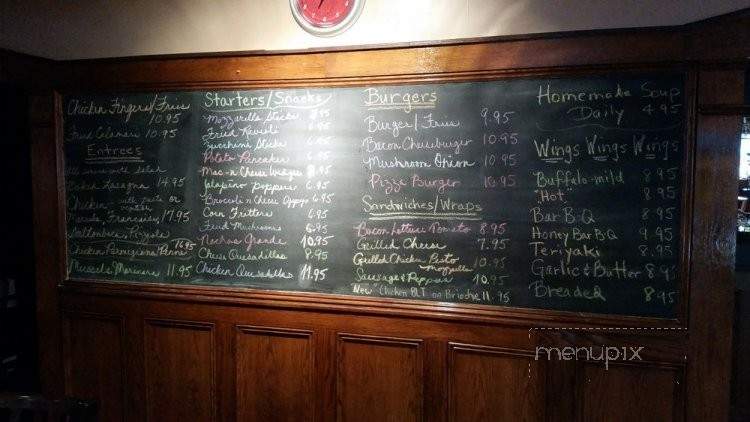 Chicken Fingers/Fries
10.95
Fried Calamari 10.95
Entrees
served with salad
Baked Lasagna 14.95
Chicken
17.95
Chicken Parmigiana/Penne 16.95
Mussels Marinara 11.95
Starters/Snacks
Mozzarella Sticks
Fried Ravioli
Zucchini Sticks
Potato Pancakes
Mac-n Cheese Wedges
Jalapeno Poppers 6.95
Broccoli n Cheese 6.95
Corn Fritters 6.95
Fried Mushrooms 6.95
Nachos Grande 10.95
Cheese Quesadillas 8.95
Chicken Quesadillas 11.95
Burgers
Burger/Fries 9.95
Bacon Cheeseburger 10.95
Mushroom Onion 10.95
Pizza Burger 10.95
Sandwiches/Wraps
Bacon Lettuce Tomato 8.95
Grilled Cheese 7.95
Grilled Chicken Pesto
Mozzarella 10.95
Sausage & Peppers 10.95
"New" Chicken BLT on Brioche 11.95
Homemade Soup
Daily 4.95
Wings Wings Wings
Buffalo-mild 8.95
"Hot" 8.95
Bar B-Q 8.95
Honey Bar B-Q 9.95
Teriyaki 8.95
Garlic & Butter 8.95
Breaded 8.95
menupix